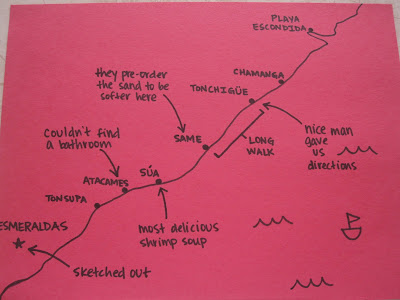 PLAYA
ESCONDIDA
CHAMANGA
TONCHIGÜE
they pre-order
the sand to be
softer here
nice man
gave
us
directions
SAME
LONG
WALK
couldn't find
a bathroom
SÚA
ATACAMES
TONSUPA
most delicious
shrimp soup
ESMERALDAS
sketched out